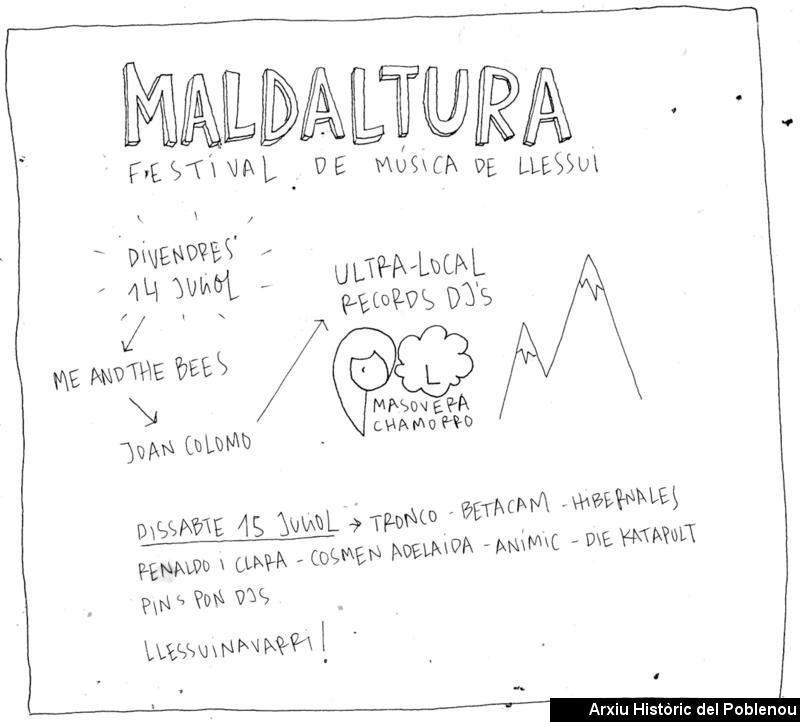 MALDALTURA
FESTIVAL DE MÚSICA DE LLESSUI
DIVENDRES
14 JULIOL
ME AND THE BEES
JOAN COLOMO
ULTRA-LOCAL
RECORDS DJ'S
L
MASOVERA
CHAMORRO
DISSABTE 15 JULIOL → TRONCO - BETACAM - HIBERNALES
RENALDO I CLARA - COSMEN ADELAIDA - ANÍMIC - DIE KATAPULT
PINS PON DJS
LLESSUINAVARRI!
Arxiu Històric del Poblenou